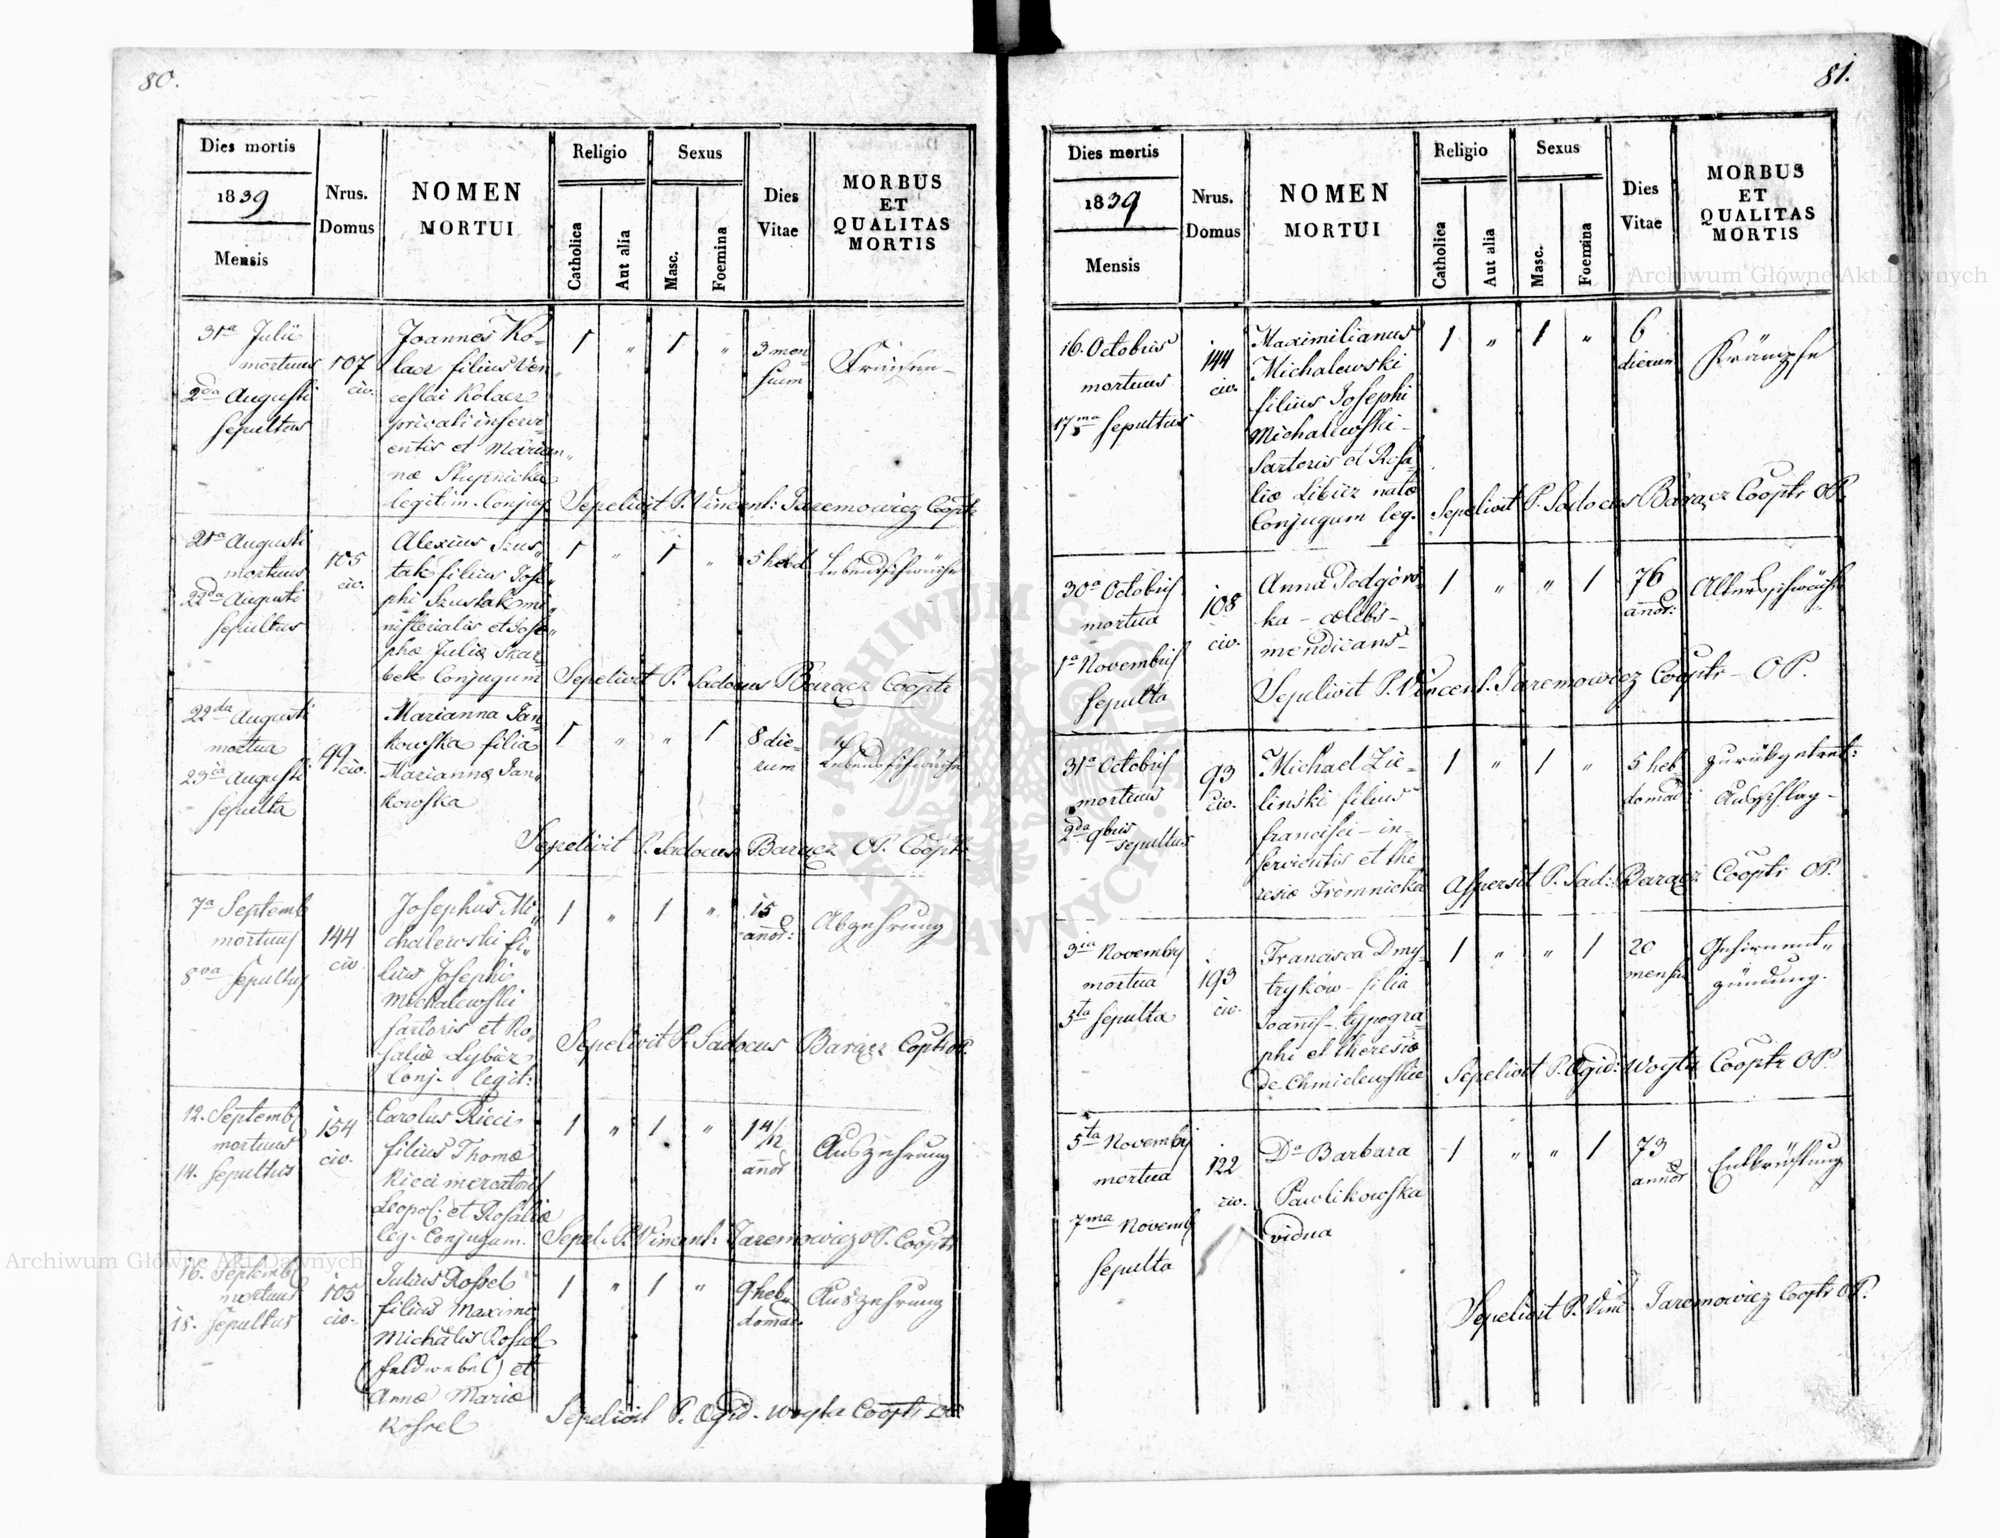 80.
Dies mortis
1839
Mensis
Nrus.
Domus
NOMEN
MORTUI
Religio
Catholica
Aut alia
Sexus
Masc.
Foemina
Dies
Vitae
MORBUS
ET
QUALITAS
MORTIS
31a Julii
mortuus
2da Augusti
sepultus
107
civ.
Joannes Ko-
lacz filius Ven
ceslai Kolacz
privati inservi-
entis et Marian-
næ Stupnicka
legitim. Conjug.
1 " 1 "
3 men-
sium
Fraisen-
Sepelivit P. Vincent: Jaremowicz Cooptr
21a Augusti
mortuus
22da Augusti
sepultus
105
civ.
Alexius Szus-
tak filius Jose-
phi Szustak mi-
nisterialis et Jose-
phæ Juliæ Skar-
bek Conjugum
1 " 1 "
5 hebd
Lebensschwäche
Sepelivit P. Sadocus Barącz Cooptr
22da Augusti
mortua
23ia Augusti
sepulta
99
civ.
Marianna Jan-
kowska filia
Mariannæ Jan-
kowska
1 " " 1
8 die-
rum
Lebensschwäche
Sepelivit P. Sadocus Barącz OP. Cooptr
7a Septemb
mortuus
8va sepultus
144
civ
Josephus Mi-
chalewski fi-
lius Josephi
Michalewski
sartoris et Ro-
saliæ Lybicz
Conj. legit:
1 " 1 "
15
annor:
Abzehrung
Sepelivit P. Sadocus Barącz Cooptr OP.
12. Septemb
mortuus
14. sepultus
154
civ.
Carolus Ricci
filius Thomæ
Ricci mercatoris
Leopol: et Rosaliæ
leg. Conjugum.
1 " 1 "
1 4/12
annor
Auszehrung
Sepel. P. Vincent: Jaremowicz OP. Cooptr
16. Septemb
mortuus
18. sepultus
105
civ.
Julius Rossel
filius Maximi
Michalis Rossel
(Feldwebel) et
Annæ Mariæ
Rossel
1 " 1 "
9 heb-
domad.
Auszehrung
Sepelivit P. Ægid. Woyta Cooptr OP.
81.
Dies mortis
1839
Mensis
Nrus.
Domus
NOMEN
MORTUI
Religio
Catholica
Aut alia
Sexus
Masc.
Foemina
Dies
Vitae
MORBUS
ET
QUALITAS
MORTIS
16. Octobris
mortuus
17ma sepultus
144
civ.
Maximilianus
Michalewski
filius Josephi
Michalewski-
Sartoris et Rosa-
liæ Libicz natæ
Conjugum leg.
1 " 1 "
6
dierum
Krämpfe
Sepelivit P. Sadocus Barącz Cooptr OP.
30a Octobris
mortua
1a Novembris
sepulta
108
civ.
Anna Podgórs-
ka - cælebs-
mendicans-
1 " " 1
76
annor:
Altersschwäche
Sepelivit P. Vincent. Jaremowicz Cooptr - OP.
31a Octobris
mortuus
2da 9bris
sepultus
93
civ.
Michael Zie-
linski filius
francisci - in-
servientis et The
resiæ Fromnicka
1 " 1 "
5 heb-
domad:
zurükgetret:
Ausschlag-
Aspersit P. Sad: Barącz Cooptr OP.
3ia Novembris
mortua
5ta sepulta
193
civ.
Francisca Dmy-
tryków - filia
Joannis - typogra-
phi et Theresiæ
de Chmielewskie
1 " " 1
20
mensi
Gehirnent-
zündung.
Sepelivit P. Ægid: Woyta Cooptr OP.
5ta Novembris
mortua
7ma Novemb
sepulta
122
civ.
Da Barbara
Pawlikowska
vidua
1 " " 1
73
annor
Entkräftung
Sepelivit P. Vinc. Jaremowicz Cooptr OP.
Archiwum Główne Akt Dawnych
Archiwum Główne Akt Dawnych
ARCHIWUM GŁÓWNE AKT DAWNYCH